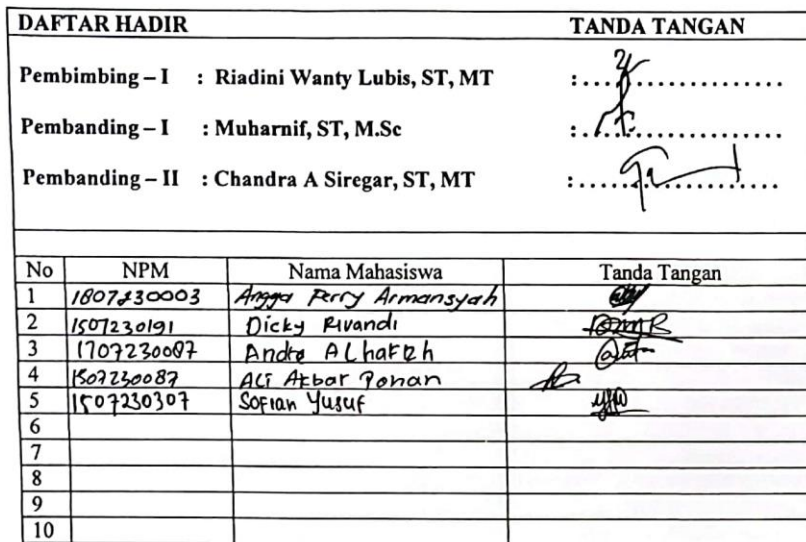 DAFTAR HADIR TANDA TANGAN
Pembimbing – I : Riadini Wanty Lubis, ST, MT :..............................
Pembanding – I : Muharnif, ST, M.Sc :..............................
Pembanding – II : Chandra A Siregar, ST, MT :..............................
No NPM Nama Mahasiswa Tanda Tangan
1 1807230003 Angga Perry Armansyah
2 1507230191 Dicky Rivandi
3 1707230087 Andre
4 1507230087 Ali Akbar
5 1507230307 Sofian Yusuf
6
7
8
9
10